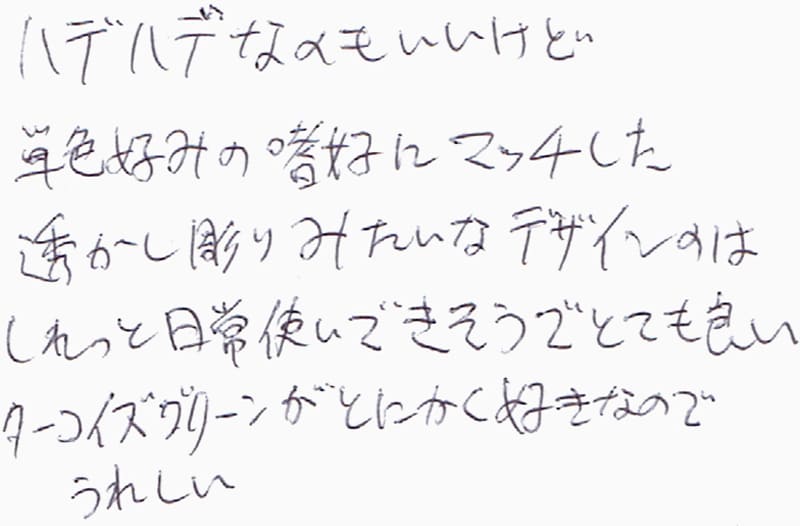 ハデハデなのもいいけど
単色好みの嗜好にマッチした
透かし彫りみたいなデザインのは
しれっと日常使いできそうでとても良い
ターコイズグリーンがとにかく好きなので
うれしい